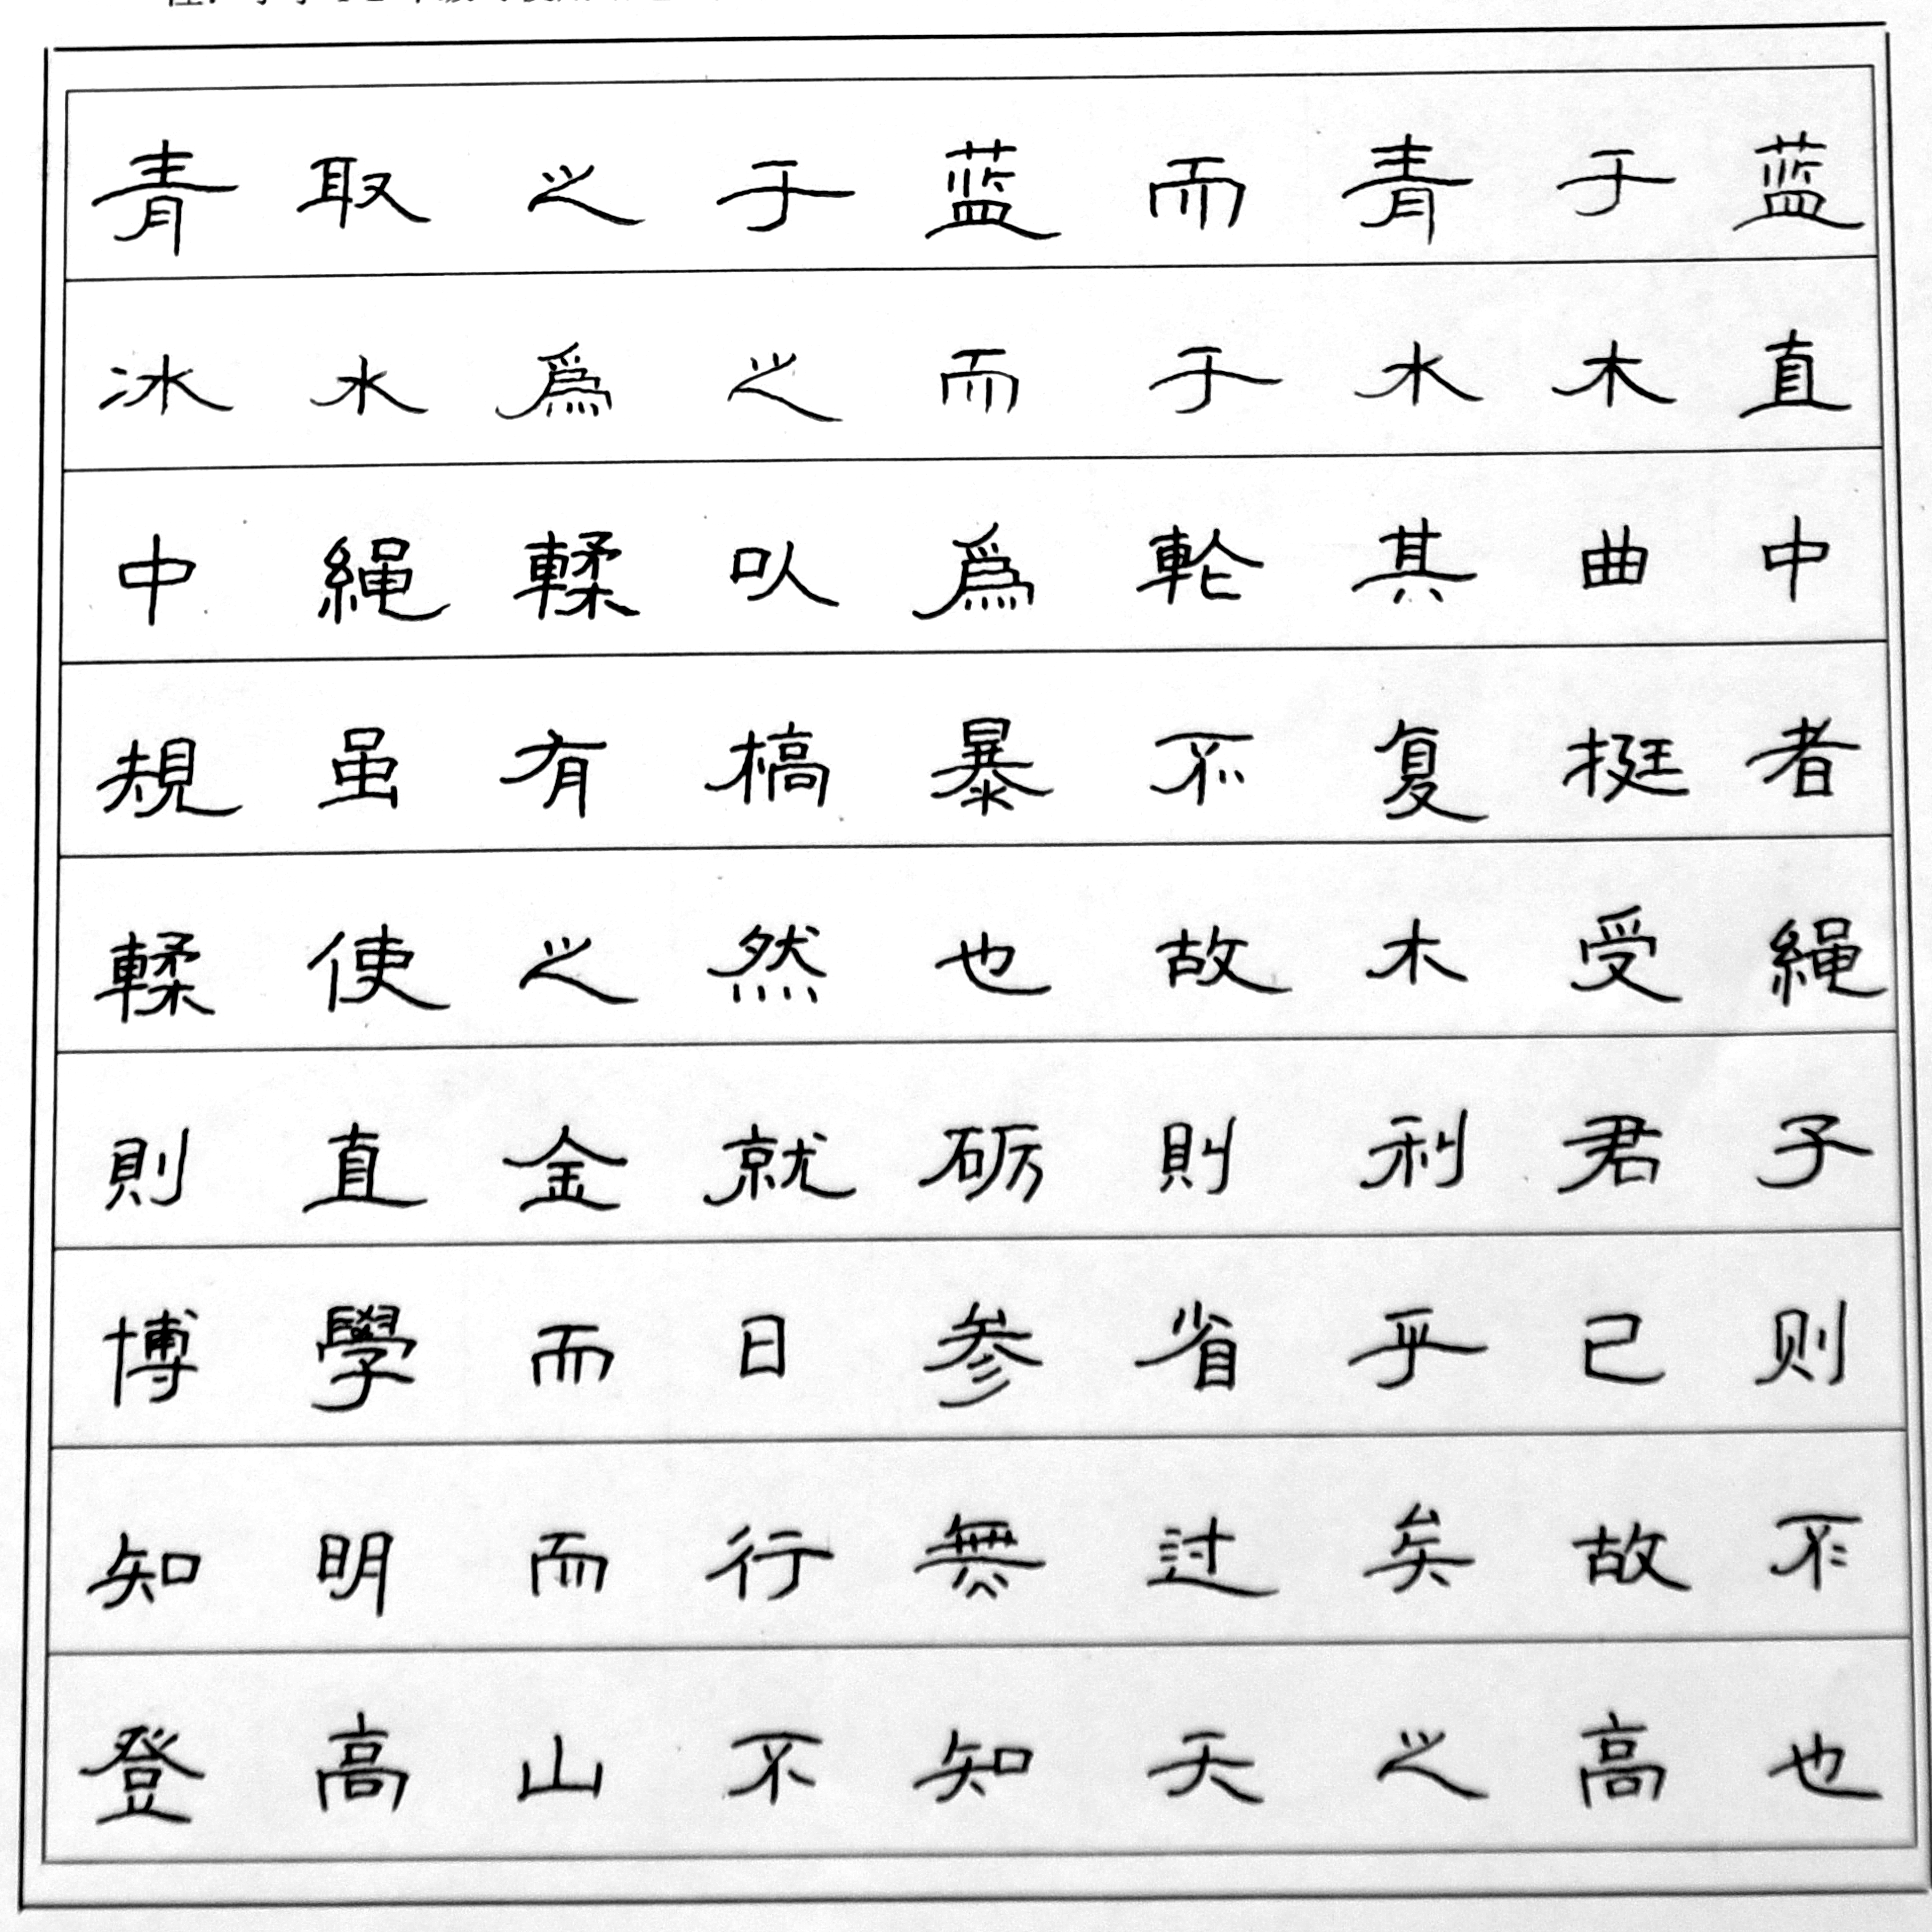 青取之于蓝而青于蓝
冰水爲之而于水木直
中繩輮以爲輪其曲中
規虽有槁暴不复挺者
輮使之然也故木受繩
則直金就砺則利君子
博學而日参省乎己则
知明而行無过矣故不
登高山不知天之高也